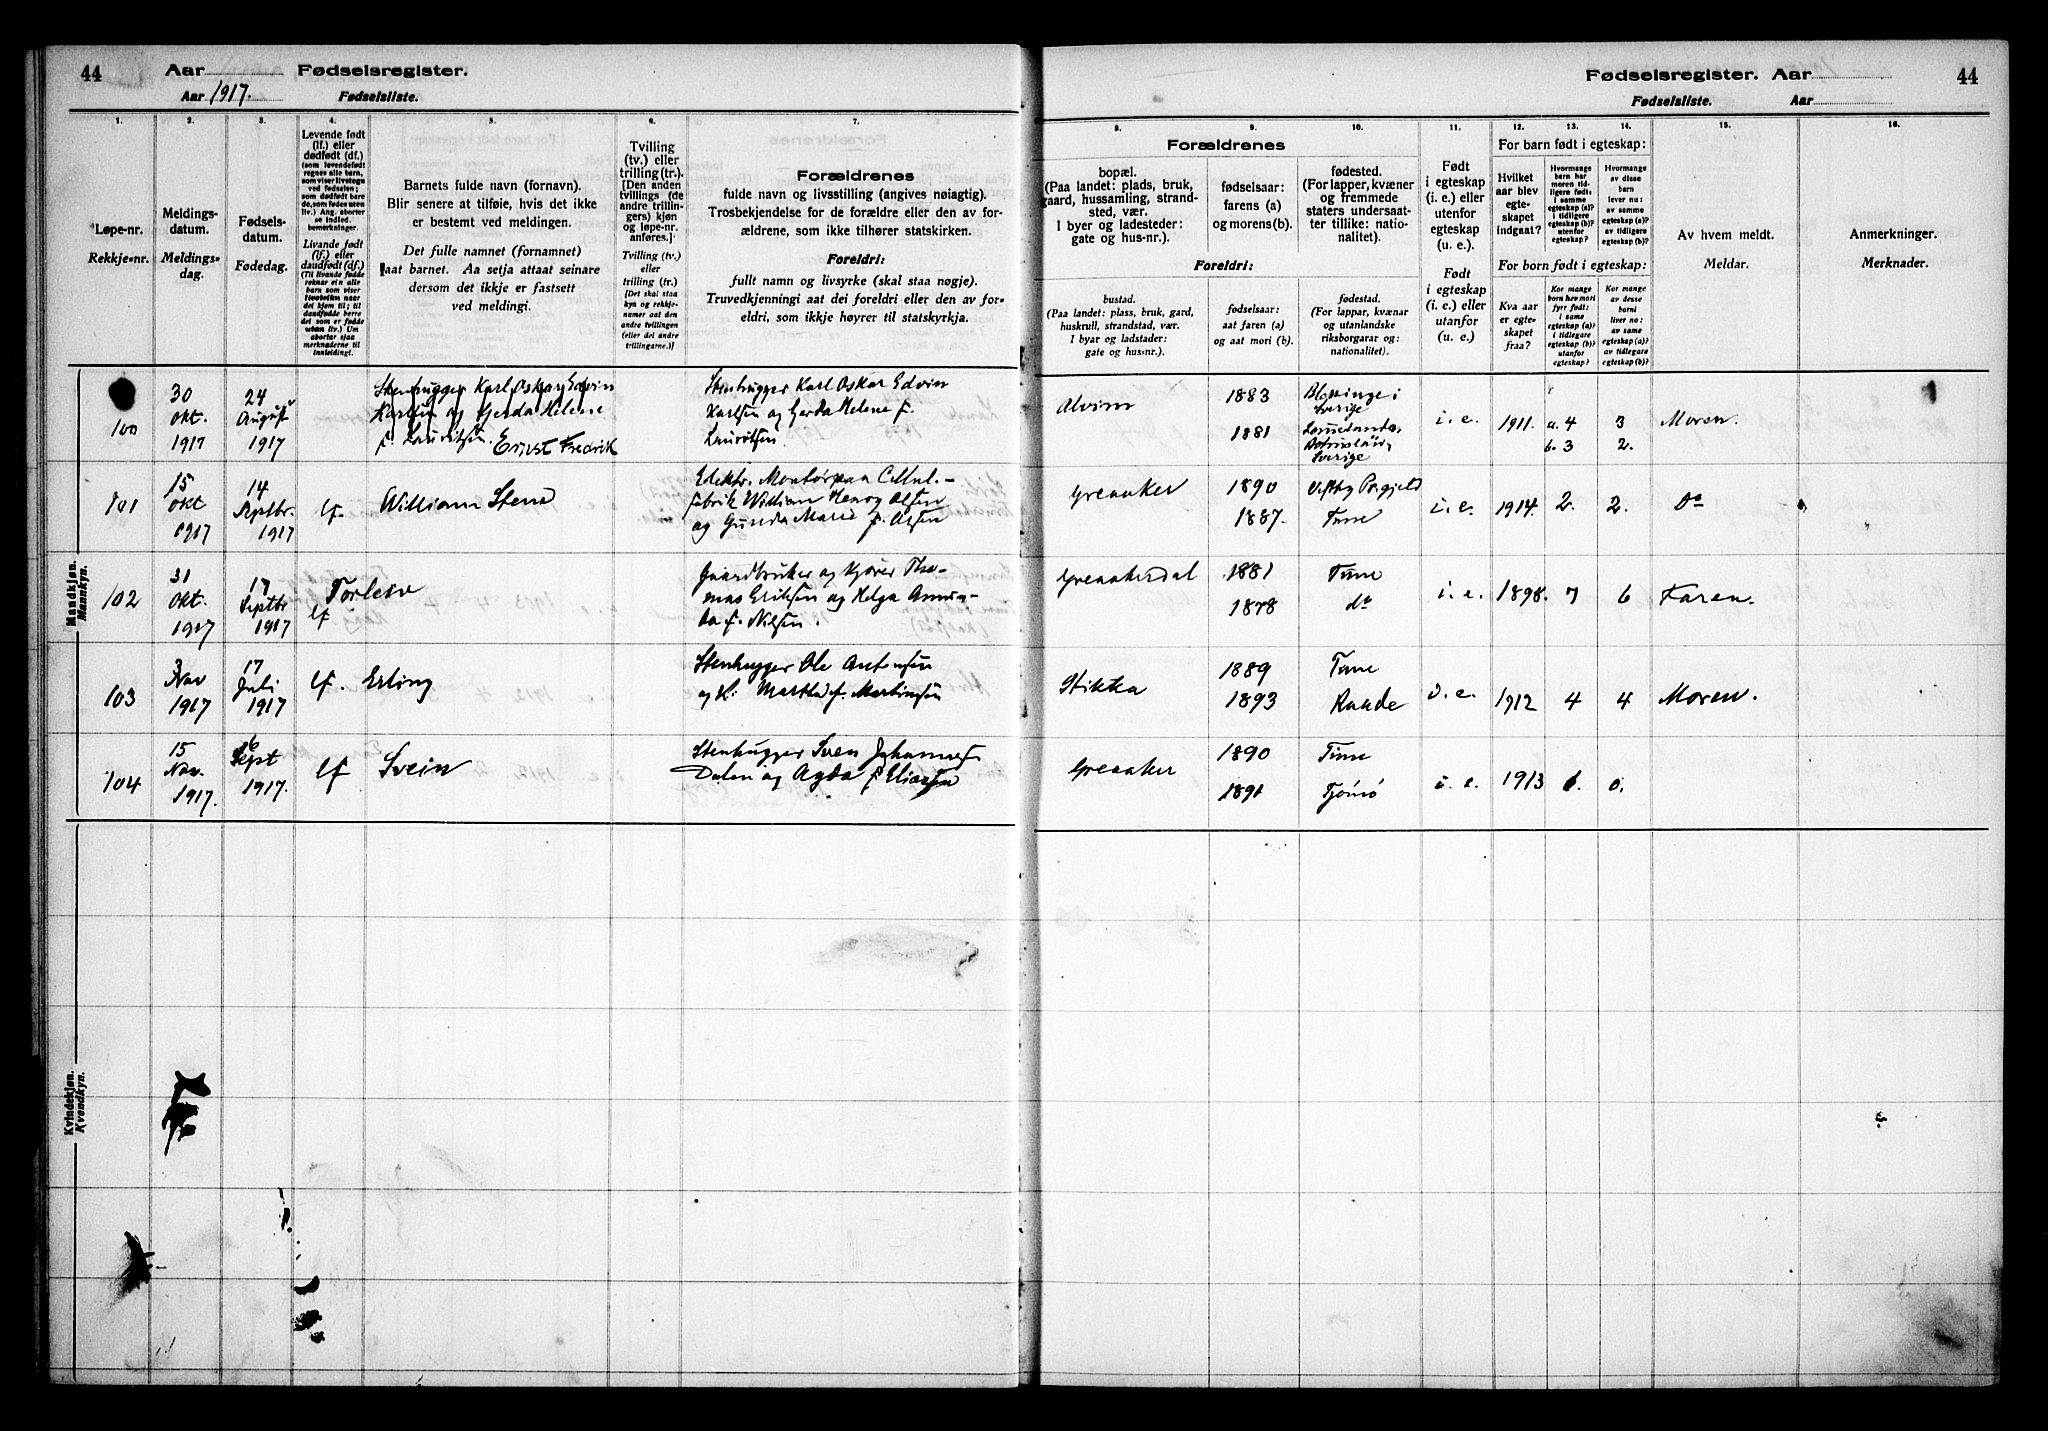 44 Aar Fødselsregister.
Aar 1917. Fødselsliste.
Fødselsregister. Aar 44
Fødselsliste. Aar
1.
Løpe-nr.
Rekkje-nr.
2.
Meldings-
datum.
Meldings-
dag.
3.
Fødsels-
datum.
Fødedag.
4.
Levende født
(lf.) eller
dødfødt (df.)
(som levendefødt
regnes alle barn,
som viser livstegn
ved fødselen;
som dødfødt bare
de, som fødes uten
liv.) Ang. aborter
se Indled.
bemerkninger.
Livande født
(lf.) eller
daudfødt (df.)
(Til livande fødde
reknar ein alle
born som viser
livsteikn naar
dei kjem til; til
daudfødde berre
dei som er fødde
utan liv.) Um
abortar sjaa
merknaderne til
innleidingi.
5.
Barnets fulde navn (fornavn).
Blir senere at tilføie, hvis det ikke
er bestemt ved meldingen.
Det fulle namnet (fornamnet)
aat barnet. Aa setja attaat seinare
dersom det ikkje er fastsett
ved meldingi.
6.
Tvilling
(tv.) eller
trilling (tr.).
[Den anden
tvillings (de
andre trillin-
gers) kjøn
og løpe-nr.
anføres.]
Tvilling (tv.)
eller
trilling (tr.)
[Det skal staa
kyn og rekkje-
numer aat den
andre tvillingen
(eller dei andre
trillingarne.)]
7.
Forældrenes
fulde navn og livsstilling (angives nøiagtig).
Trosbekjendelse for de forældre eller den av for-
ældrene, som ikke tilhører statskirken.
Foreldri:
fullt namn og livsyrke (skal staa nøgje).
Truvedkjenningi aat dei foreldri eller den av for-
eldri, som ikkje høyrer til statskyrkja.
8.
Forældrenes
bopæl.
(Paa landet: plads, bruk,
gaard, hussamling, strand-
sted, vær.
I byer og ladesteder:
gate og hus-nr.).
Foreldri:
bustad.
(Paa landet: plass, bruk, gard,
huskrull, strandstad, vær.
I byar og ladstader:
gate og hus-nr.).
9.
fødselsaar:
farens (a)
og morens (b).
fødselsaar:
aat faren (a)
og aat mori (b).
10.
fødested.
(For lapper, kvæner
og fremmede
staters undersaat-
ter tillike: natio-
nalitet).
fødestad.
(For lappar, kvænar
og utanlandske
riksborgarar og:
nationalitet).
11.
Født
i egteskap
(i. e.) eller
utenfor
egteskap
(u. e.).
Født
i egteskap
(i. e.) eller
utanfor
(u. e.).
For barn født i egteskap:
12.
Hvilket
aar blev
egte-
skapet
indgaat?
For born født i egteskap:
Kva aar
er egte-
skapet
fraa?
13.
Hvormange
barn har
moren tid-
ligere født:
i samme
egteskap (a)?
i tidligere
egteskap (b)?
utenfor
egteskap?
Kor mange
born hev mori
fyrr født:
i same
egteskap (a)?
i tidlegare
egteskap (b)?
utanfor
egteskap?
14.
Hvormange
av disse
barn
lever nu:
av samme
egteskap (a)?
av tidligere
egteskap (b)?
Kor mange
av desse
borni
liver no:
av same
egteskap (a)?
av tidlegare
egteskap (b)?
15.
Av hvem meldt.
Meldar.
16.
Anmerkninger.
Merknader.
Mandkjøn.
Mannkyn.
100
30
okt.
1917
24
August
1917
Stenhugger Karl Oskar Edvin
Karlsen og Gerda Helene
f. Lauritsen. Ernst Fredrik
Stenhugger Karl Oskar Edvin
Karlsen og Gerda Helene f.
Lauritsen.
Alvim
1883
1881
Blekinge i
Sverige
Sverige
i. e. 1911. a. 4 3 Moren.
b. 3 2.
101
15
okt
1917
14
Septbr.
1917
lf. William Stene
Elektr. Montør paa Cellul.-
fabrik William Henry Olsen
og Gunda Marie f. Olsen
Greaaker
1890
1887.
Tune
i. e. 1914. 2. 2. Do
102
31
okt.
1917
17
Septbr
1917
lf Torleiv
Gaardbruker og kjører Tho-
mas Eriksen og Helga Amun-
da f. Nilsen.
Greaakerdal
1881
1878
Tune
do
i. e. 1898. 7 6 Faren.
103
3
Nov
1917
17
Juli
1917
lf. Erling
Stenhugger Ole Antonsen
og H. Martha f. Martinsen
Stikka
1889
1893
Tune
Raade
i. e. 1912 4 4 Moren.
104
15
Nov.
1917.
Sept
1917.
lf Svein
Stenhugger Sven Johannes
Dalen og Agda f. Eliassen
Greaaker
1890
1891
Tune
Tjømø
i. e. 1913 1. 0.
Kvindekjøn.
Kvendkyn.